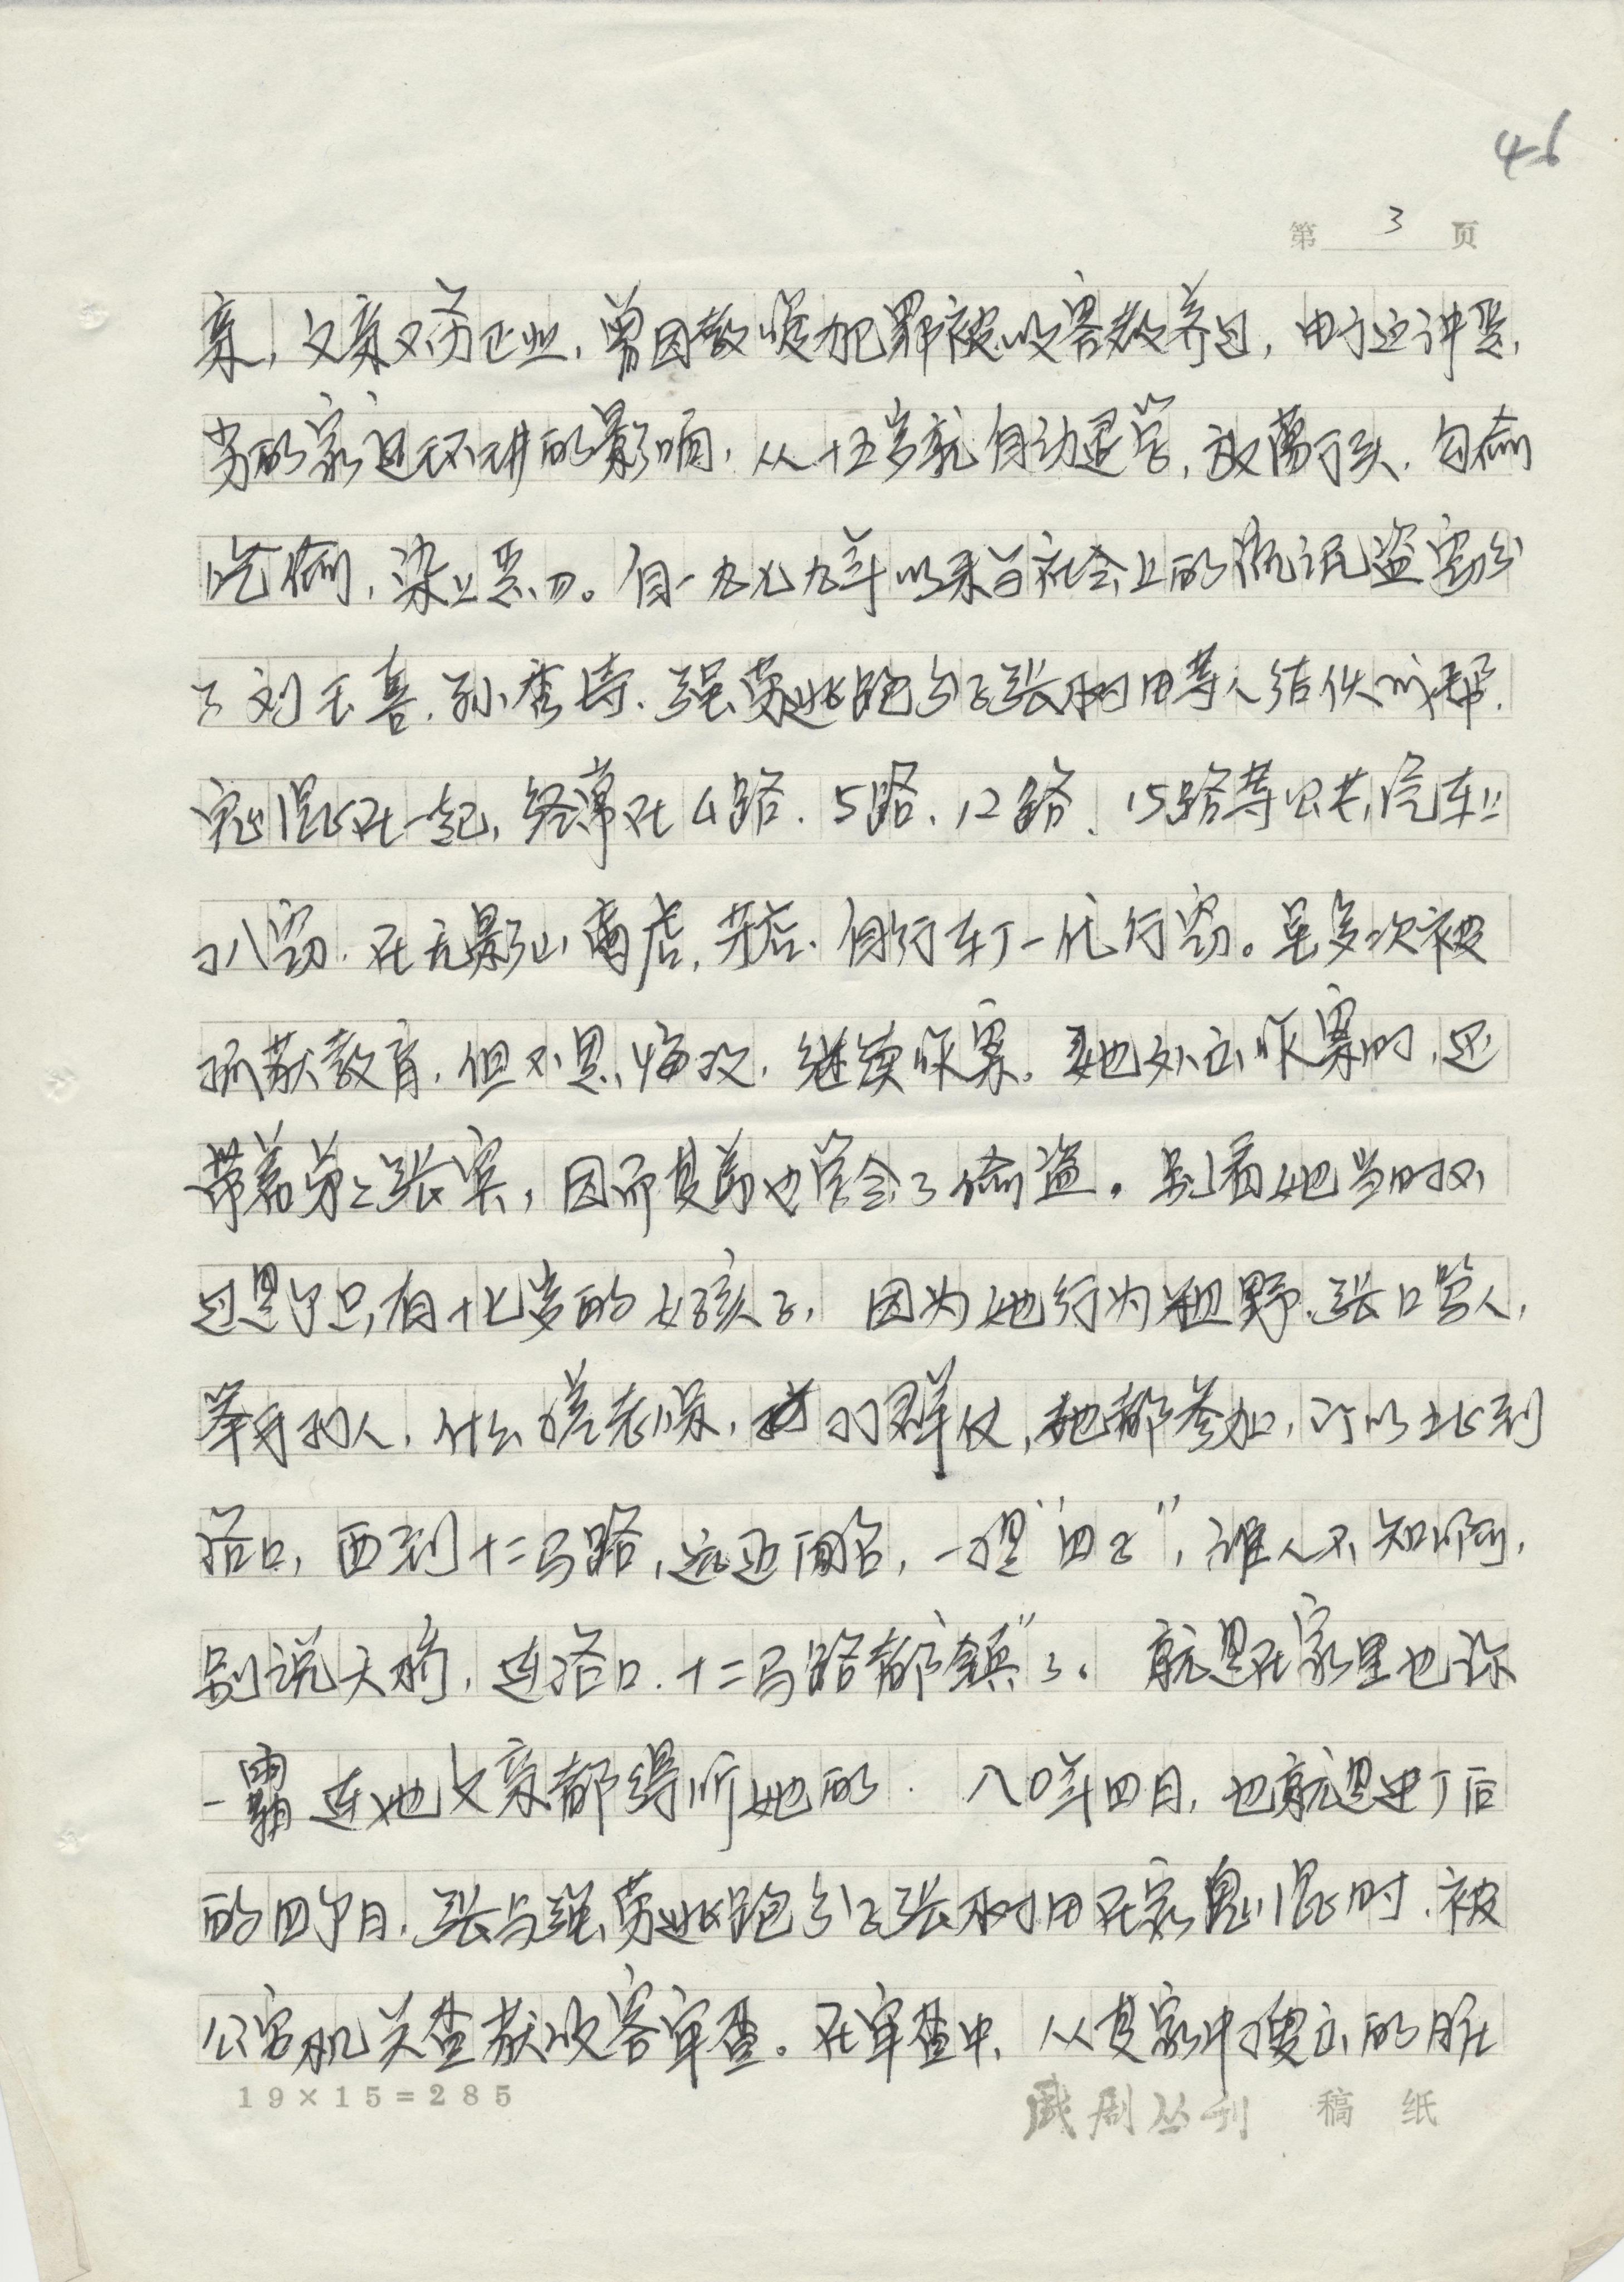 46
第 3 页
亲,父亲又不务正业,曾因教唆犯罪被收容教养过,由于这种恶
劣的家庭环境的影响,从十五岁就自动退学,放荡于外,白偷
吃偷,染上恶习。自一九七九年以来与社会上的流氓盗窃分
子刘玉喜、孙秀涛、强劳逃跑分子张树田等人结伙成帮,
鬼混在一起,经常在4路、5路、12路、15路等公共汽车上
扒窃,在无影山商店,菜店、自行车厂一代行窃。虽多次被
抓获教育,但不思悔改,继续作案。她外出作案时,还
带着弟弟张宾,因而其弟也学会了偷盗。别看她当时不
过是个只有十七岁的女孩子,因为她行为粗野、张口骂人,
举手打人,什么搓老憷,打群仗,她都参加,所以北到
洛口,西到十二马路,远近闻名,一提“四子”,谁人不知啊,
别说天桥,连洛口、十二马路都“镇”了。就是在家里也称
一霸 连她父亲都得听她的. 八0年四月,也就是进厂后
的四个月,张与强劳逃跑分子张树田在家鬼混时,被
公安机关查获收容审查。在审查中,从其家中搜出的脏
19×15=285 戏剧丛刊 稿纸